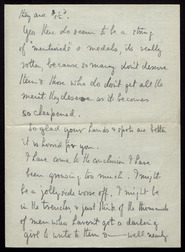 they are "it".
Yes there do seem to be a string
of "mentioneds" & medals, its really
rotten because so many dont deserve
them & those who do dont get all the
merit they deserve as it becomes
so cheapened.
So glad your hands & spots are better
it is horrid for you.
I have come to the conclusion I have
been grousing too much. I might
be a jolly side worse off. I might be
in the trenches & just think of the thousands
of men who havent got a darling
girl to write to them — well nearly